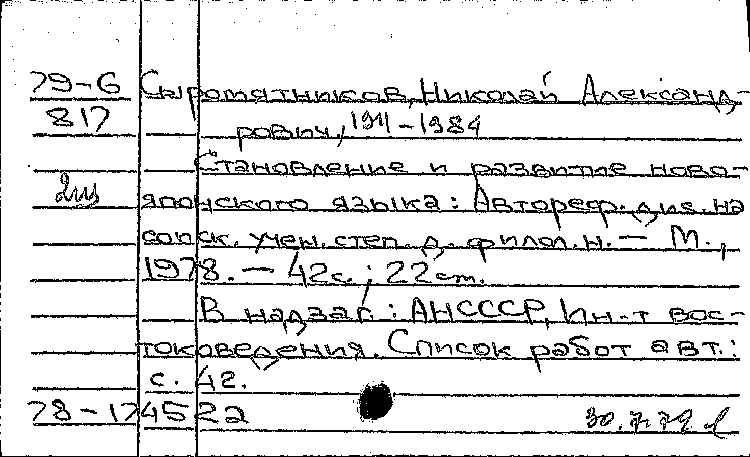 79-6 Сыромятников, Николай Александ-
817 рович, 1911-1984
Становление и развитие ново-
японского языка: Автореф. дис. на
соиск. учен. степ. д. филол. н. — М.,
1978. — 42 с.; 22 см.
В надзаг.: АН СССР, Ин-т вос-
токоведения. Список работ авт.:
с. 42.
78-174522а 30.7.79